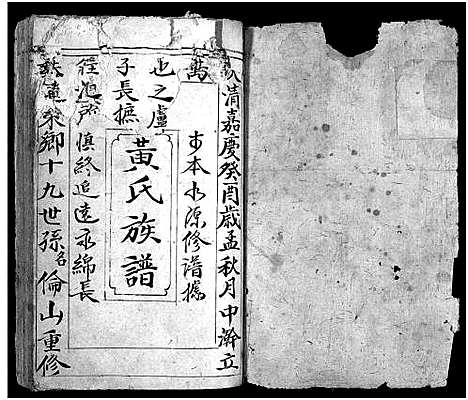 清嘉慶癸酉歲孟秋月中澣立
萬
本水源修譜據
也之盧
子長撫
黃氏族譜
慎終追遠永綿長
鄉十九世孫名倫山重修